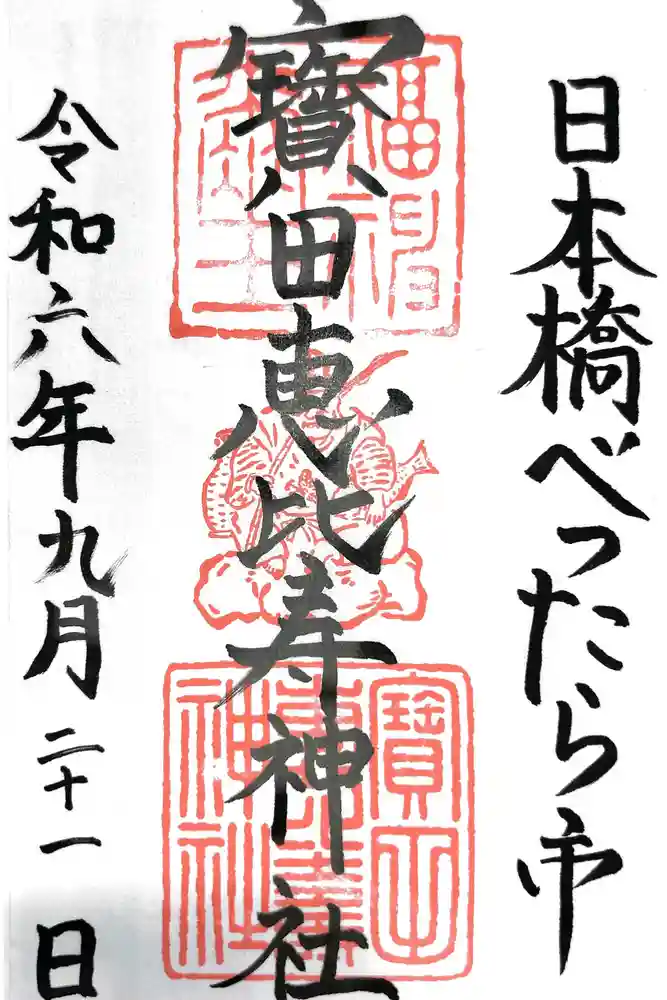 日本橋べったら市
寳田恵比寿神社
令和六年九月二十一日